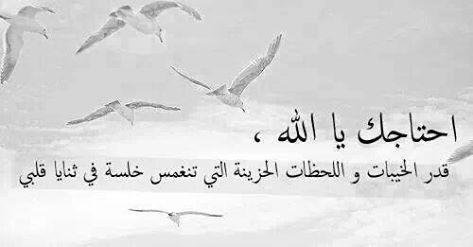 احتاجك يا الله ،
قدر الخيبات و اللحظات الحزينة التي تنغمس خلسة في ثنايا قلبي